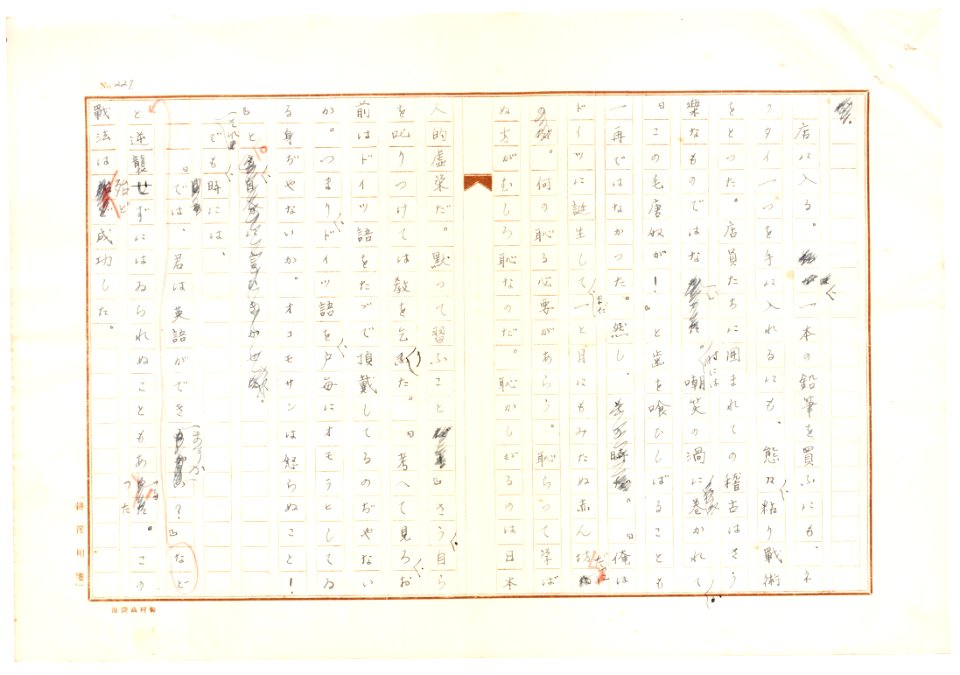 No. 227
店に入る。一本の鉛筆を買ふにも、ネ
クタイ一つを手に入れるにも、態々粘り戦術
をとつた。店員たちに囲まれての稽古はさう
楽なものではない。時には嘲笑の渦に巻かれて、
『この毛唐奴が!』と歯を喰ひしばることも
一再ではなかつた。然し、『俺は
ドイツに誕生して、まだ一と月にもみたぬ赤ん坊だ
の。何の恥る必要があらう。恥らつて学ば
ぬ方がむしろ恥なのだ。恥かしがるのは日本
人的虚栄だ。黙つて習ふこと』さう自ら
を叱りつけては教を乞ふた。『考へて見ろ、お
前はドイツ語をたゞで頂戴してるのぢやない
か。つまり、ドイツ語を、戸毎にオモラとしてゐ
る身ぢやないか。オコモサンは怒らぬこと!
』と
それでも、時には、
『では、君は英語ができますか?』など
と逆襲せずにはゐられぬこともあつた。この
戦法は殆ど成功した。